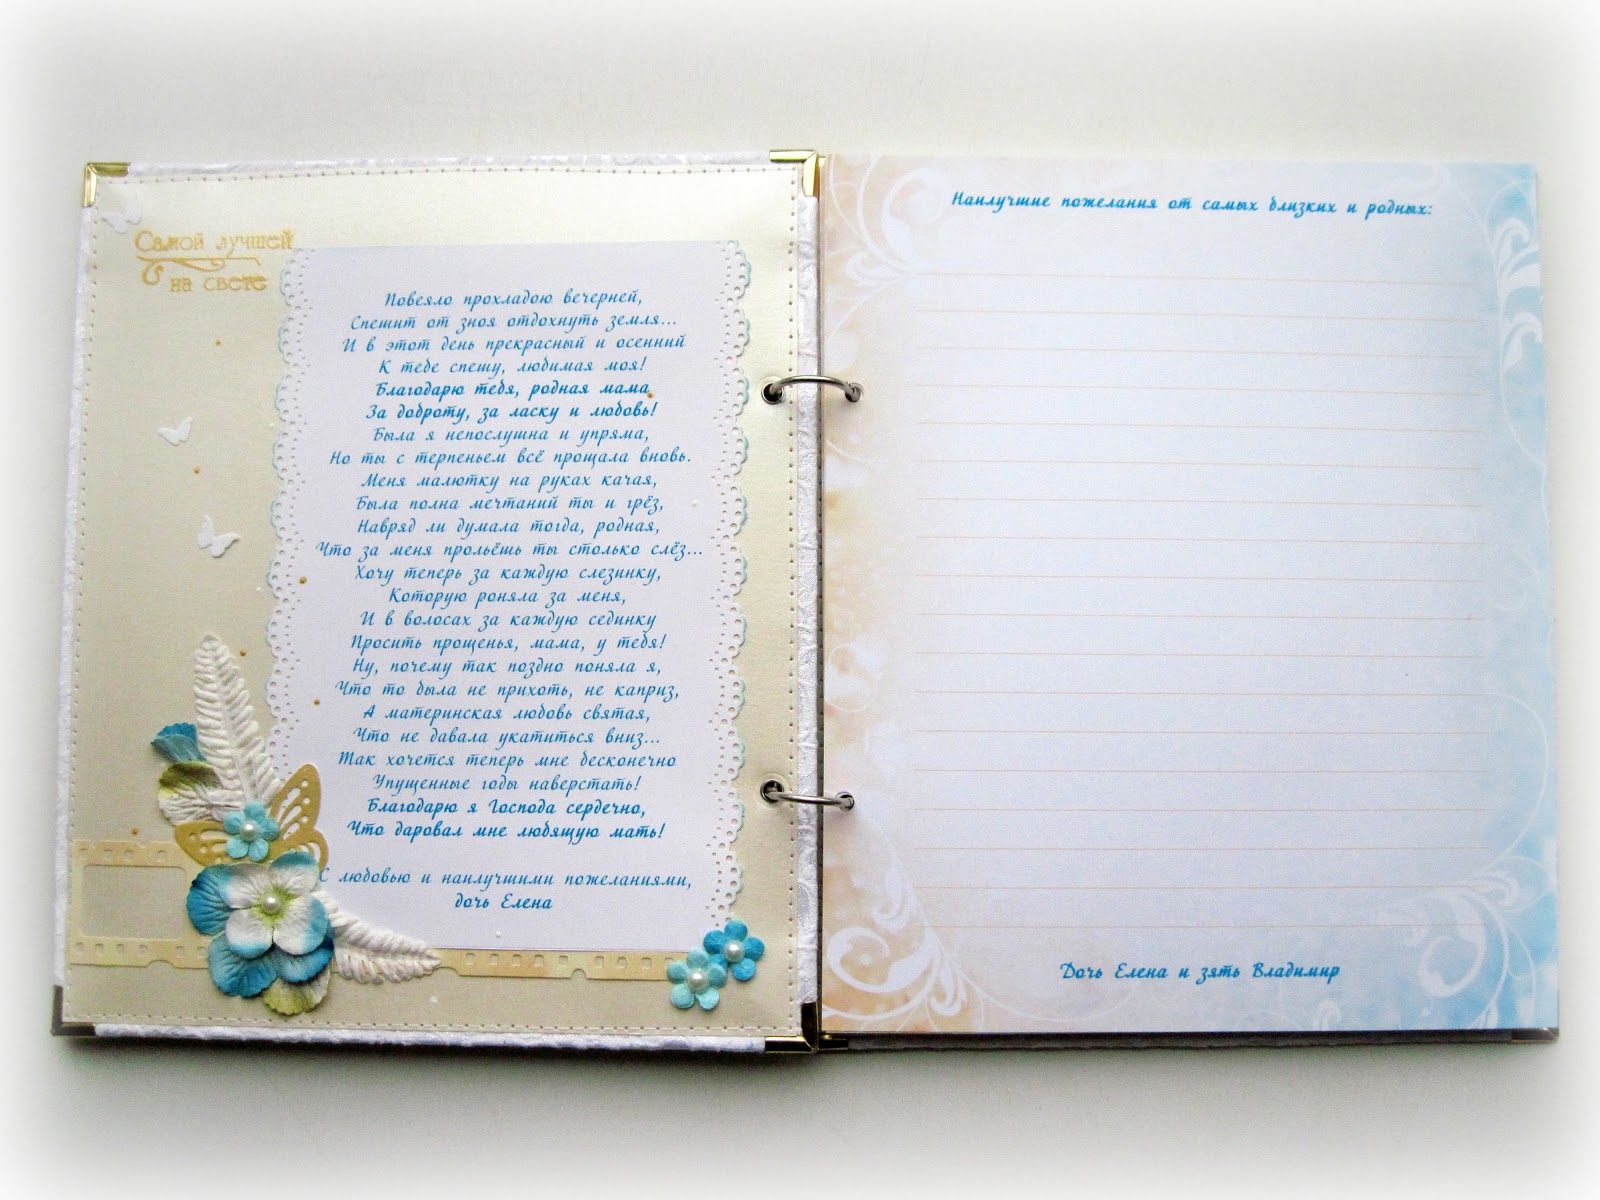 Самой лучшей
на свете
Повеяло прохладою вечерней,
Спешит от зноя отдохнуть земля...
И в этот день прекрасный и осенний
К тебе спешу, любимая моя!
Благодарю тебя, родная мама
За доброту, за ласку и любовь!
Была я непослушна и упряма,
Но ты с терпеньем всё прощала вновь.
Меня малютку на руках качая,
Была полна мечтаний ты и грёз,
Навряд ли думала тогда, родная,
Что за меня прольёшь ты столько слёз...
Хочу теперь за каждую слезинку,
Которую роняла за меня,
И в волосах за каждую сединку
Просить прощенья, мама, у тебя!
Ну, почему так поздно поняла я,
Что то была не прихоть, не каприз,
А материнская любовь святая,
Что не давала укатиться вниз...
Так хочется теперь мне бесконечно
Упущенные годы наверстать!
Благодарю я Господа сердечно,
Что даровал мне любящую мать!
С любовью и наилучшими пожеланиями,
дочь Елена
Наилучшие пожелания от самых близких и родных:
Дочь Елена и зять Владимир